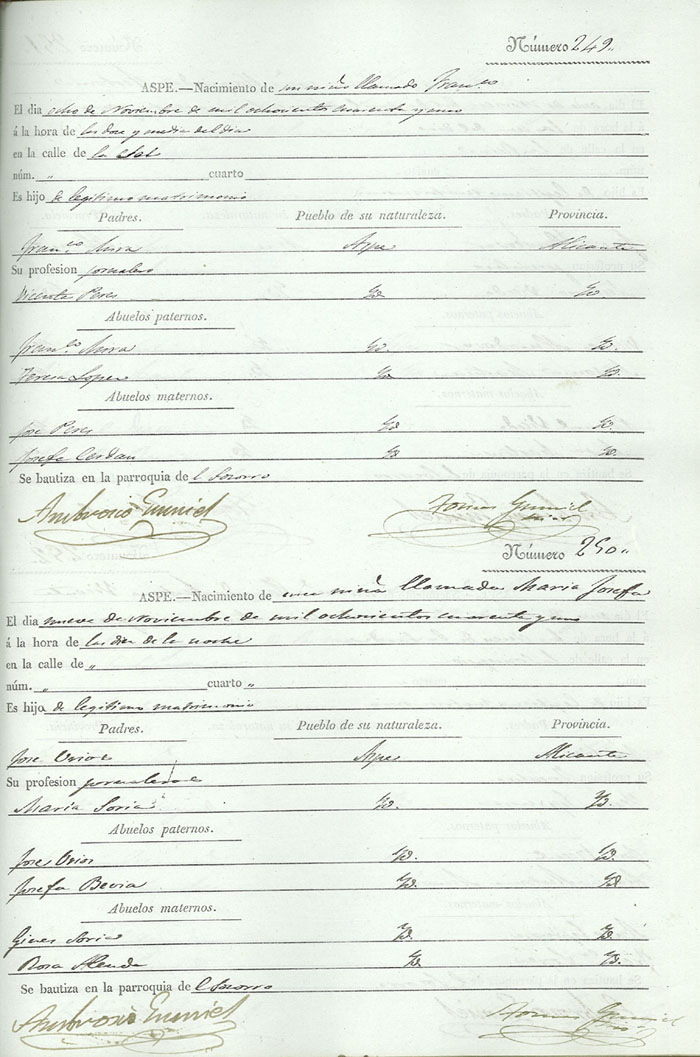 Número 249.
ASPE.—Nacimiento de un niño llamado Fran.co
El dia ocho de Noviembre de mil ochocientos cuarenta y uno
á la hora de las doce y media del dia
en la calle de la
núm. " cuarto
Es hijo de legitimo matrimonio
Padres. Pueblo de su naturaleza. Provincia.
Fran.co Mira Aspe Alicante
Su profesion jornalero
Vicenta Peres Yd. Yd.
Abuelos paternos.
Fran.co Mira Yd. Yd.
Teresa Lopez Yd. Yd.
Abuelos maternos.
Jose Peres Yd. Yd.
Josefa Cerdan Yd. Yd.
Se bautiza en la parroquia del Socorro
Ambrosio
Tomas
Número 250.
ASPE.—Nacimiento de una niña llamada Maria Josefa
El dia nueve de Noviembre de mil ochocientos cuarenta y uno
á la hora de las diez de la noche
en la calle de "
núm. " cuarto "
Es hijo de legitimo matrimonio
Padres. Pueblo de su naturaleza. Provincia.
Jose Aspe Alicante
Su profesion jornalero
Maria Soria Yd. Yd.
Abuelos paternos.
Jose Yd. Yd.
Josefa Bevia Yd. Yd.
Abuelos maternos.
Gines Soria Yd. Yd.
Rosa Yd. Yd.
Se bautiza en la parroquia del Socorro
Ambrosio
Tomas